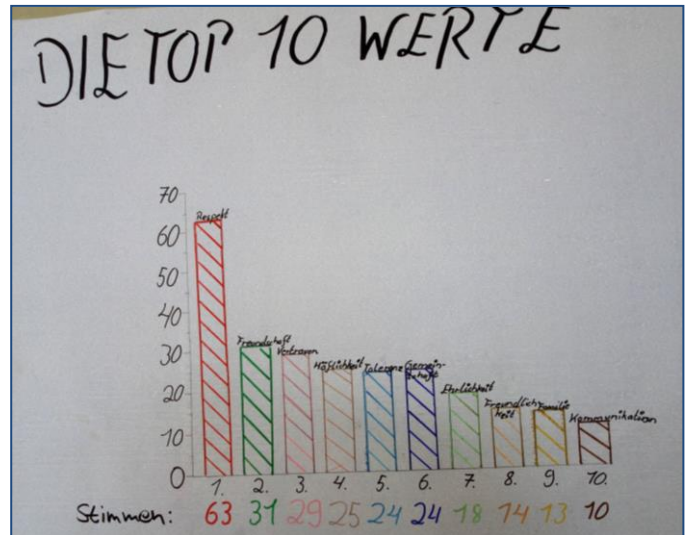 DIE TOP 10 WERTE
70
60
50
40
30
20
10
0
Respekt
Freundschaft
Vertrauen
Höflichkeit
Toleranz
Gemein-
schaft
Ehrlichkeit
Freundlich
keit
Familie
Kommunikation
1. 2. 3. 4. 5. 6. 7. 8. 9. 10.
Stimmen: 63 31 29 25 24 24 18 14 13 10